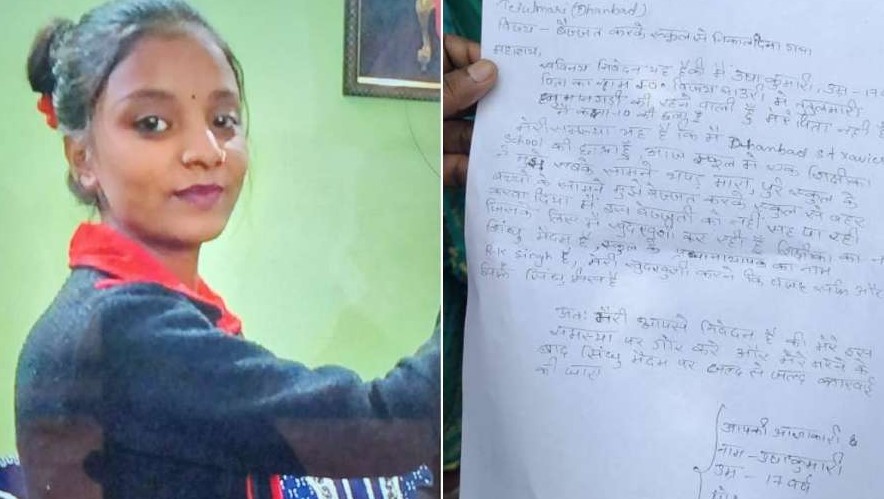 Tetulmari (Dhanbad)
विषय - बेज्जत करके स्कूल से निकाल दिया गया
महाशय,
सविनय निवेदन यह है की मैं उषा कुमारी, उम्र - 17
पिता का नाम
की रहने वाली हूँ मेरे पिता नहीं है
मैं कक्षा 10 की छात्रा हूँ
मेरी समस्या यह है कि मैं Dhanbad st xavier
School की छात्रा हूँ, आज स्कूल में एक शिक्षीका
ने मुझे सबके सामने थप्पड़ मारा, पुरे स्कूल के
बच्चों के सामने मुझे बेज्जत करके स्कूल से बाहर
करवा दिया मैं इस बेज्जती को नहीं सह पा रही
जिसके लिए मैं खुदखुशी कर रही हूँ शिक्षीका का
सिंधु मैडम है, स्कूल के का नाम
R.K Singh है, मेरी खुदखुशी करने कि वजह और
सिर्फ सिंधु मैडम है
अतः मेरी आपसे निवेदन है की मेरे इस
समस्या पर गौर करे और मेरे मरने के
बाद सिंधु मैडम पर जल्द से जल्द कारवाई
की जाए
आपकी आज्ञाकारी
नाम - उषा कुमारी
उम्र - 17 वर्ष